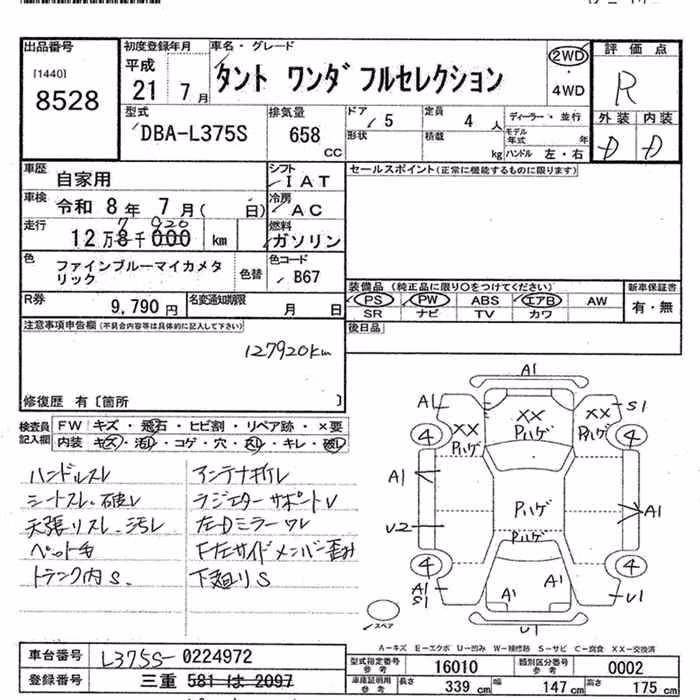 出品番号
[1440]
8528
初度登録年月
平成
21 7月
車名・グレード
タント ワンダフルセレクション
2WD
4WD
評価点
R
外装 内装
D D
型式
DBA-L375S
排気量
658
cc
ドア
5
形状
定員
4人
積載
kg
ディーラー・並行
モデル年式 年
ハンドル 左・右
車歴
自家用
シフト
IAT
車検
令和 8年 7月( 日)
冷房
AC
走行
12万8千000 km
7 920
燃料
ガソリン
色
ファインブルーマイカメタリック
色替
色コード
B67
R券
9,790円
名変通知期限
月 日
セールスポイント(正常に機能するものに限ります)
装備品(純正品に限り○をつけてください)
PS PW ABS エアB AW
SR ナビ TV カワ
新車保証書
有・無
後日品
注意事項申告欄(不具合内容等は具体的に記入して下さい)
127920km
修復歴 有〔箇所 〕
検査員記入欄
FW キズ・飛石・ヒビ割・リペア跡・×要
内装 キズ・汚レ・コゲ・穴・スレ・キレ・破レ
ハンドルスレ
シートスレ、破レ
天張リスレ、汚レ
ペット毛
トランク内S
アンテナ折レ
ラジエターサポートU
左Dミラーワレ
F左サイドメンバー歪み
下廻りS
A1
A1
S1
XX
Pハゲ
XX
Pハゲ
XX
Pハゲ
4
4
A1
Pハゲ
A1
U2
Pハゲ
4
4
A1
S1
A1
A1
U1
U1
スペア
A−キズ E−エクボ U−凹み W−補修跡 S−サビ C−腐食 XX−交換済
車台番号
L375S-0224972
登録番号
三重 581 は 2097
型式指定番号
参考
16010
類別区分番号
参考
0002
車庫証明用
参考
長さ 339 cm
幅 147 cm
高さ 175 cm